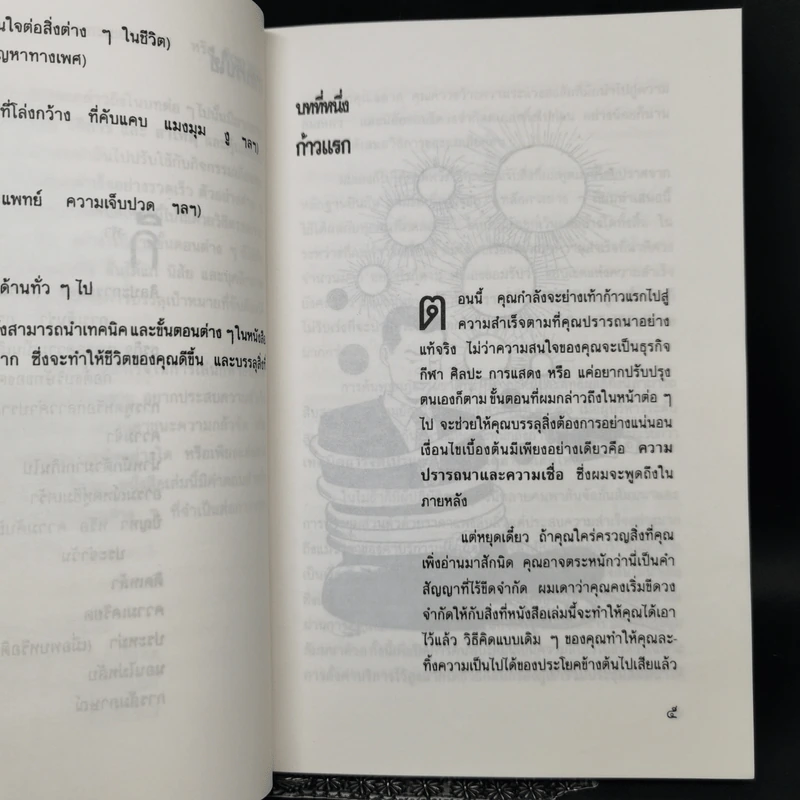 นใจต่อสิ่งต่าง ๆ ในชีวิต)
ญหาทางเพศ)
ที่โล่งกว้าง ที่คับแคบ แมงมุม งู ฯลฯ)
แพทย์ ความเจ็บปวด ฯลฯ)
ด้านทั่ว ๆ ไป
งสามารถนำเทคนิค และขั้นตอนต่าง ๆ ในหนังสือ
าก ซึ่งจะทำให้ชีวิตของคุณดีขึ้น และบรรลุสิ่งที่
บทที่หนึ่ง
ก้าวแรก
ตอนนี้ คุณกำลังจะย่างเท้าก้าวแรกไปสู่
ความสำเร็จตามที่คุณปรารถนาอย่าง
แท้จริง ไม่ว่าความสนใจของคุณจะเป็นธุรกิจ
กีฬา ศิลปะ การแสดง หรือ แค่อยากปรับปรุง
ตนเองก็ตาม ขั้นตอนที่ผมกล่าวถึงในหน้าต่อ ๆ
ไป จะช่วยให้คุณบรรลุสิ่งต้องการอย่างแน่นอน
เงื่อนไขเบื้องต้นมีเพียงอย่างเดียวคือ ความ
ปรารถนาและความเชื่อ ซึ่งผมจะพูดถึงใน
ภายหลัง
แต่หยุดเดี๋ยว ถ้าคุณใคร่ครวญสิ่งที่คุณ
เพิ่งอ่านมาสักนิด คุณอาจตระหนักว่านี่เป็นคำ
สัญญาที่ไร้ขีดจำกัด ผมเดาว่าคุณคงเริ่มขีดวง
จำกัดให้กับสิ่งที่หนังสือเล่มนี้จะทำให้คุณได้เอา
ไว้แล้ว วิธีคิดแบบเดิม ๆ ของคุณทำให้คุณละ-
ทิ้งความเป็นไปได้ของประโยคข้างต้นไปเสียแล้ว
๕